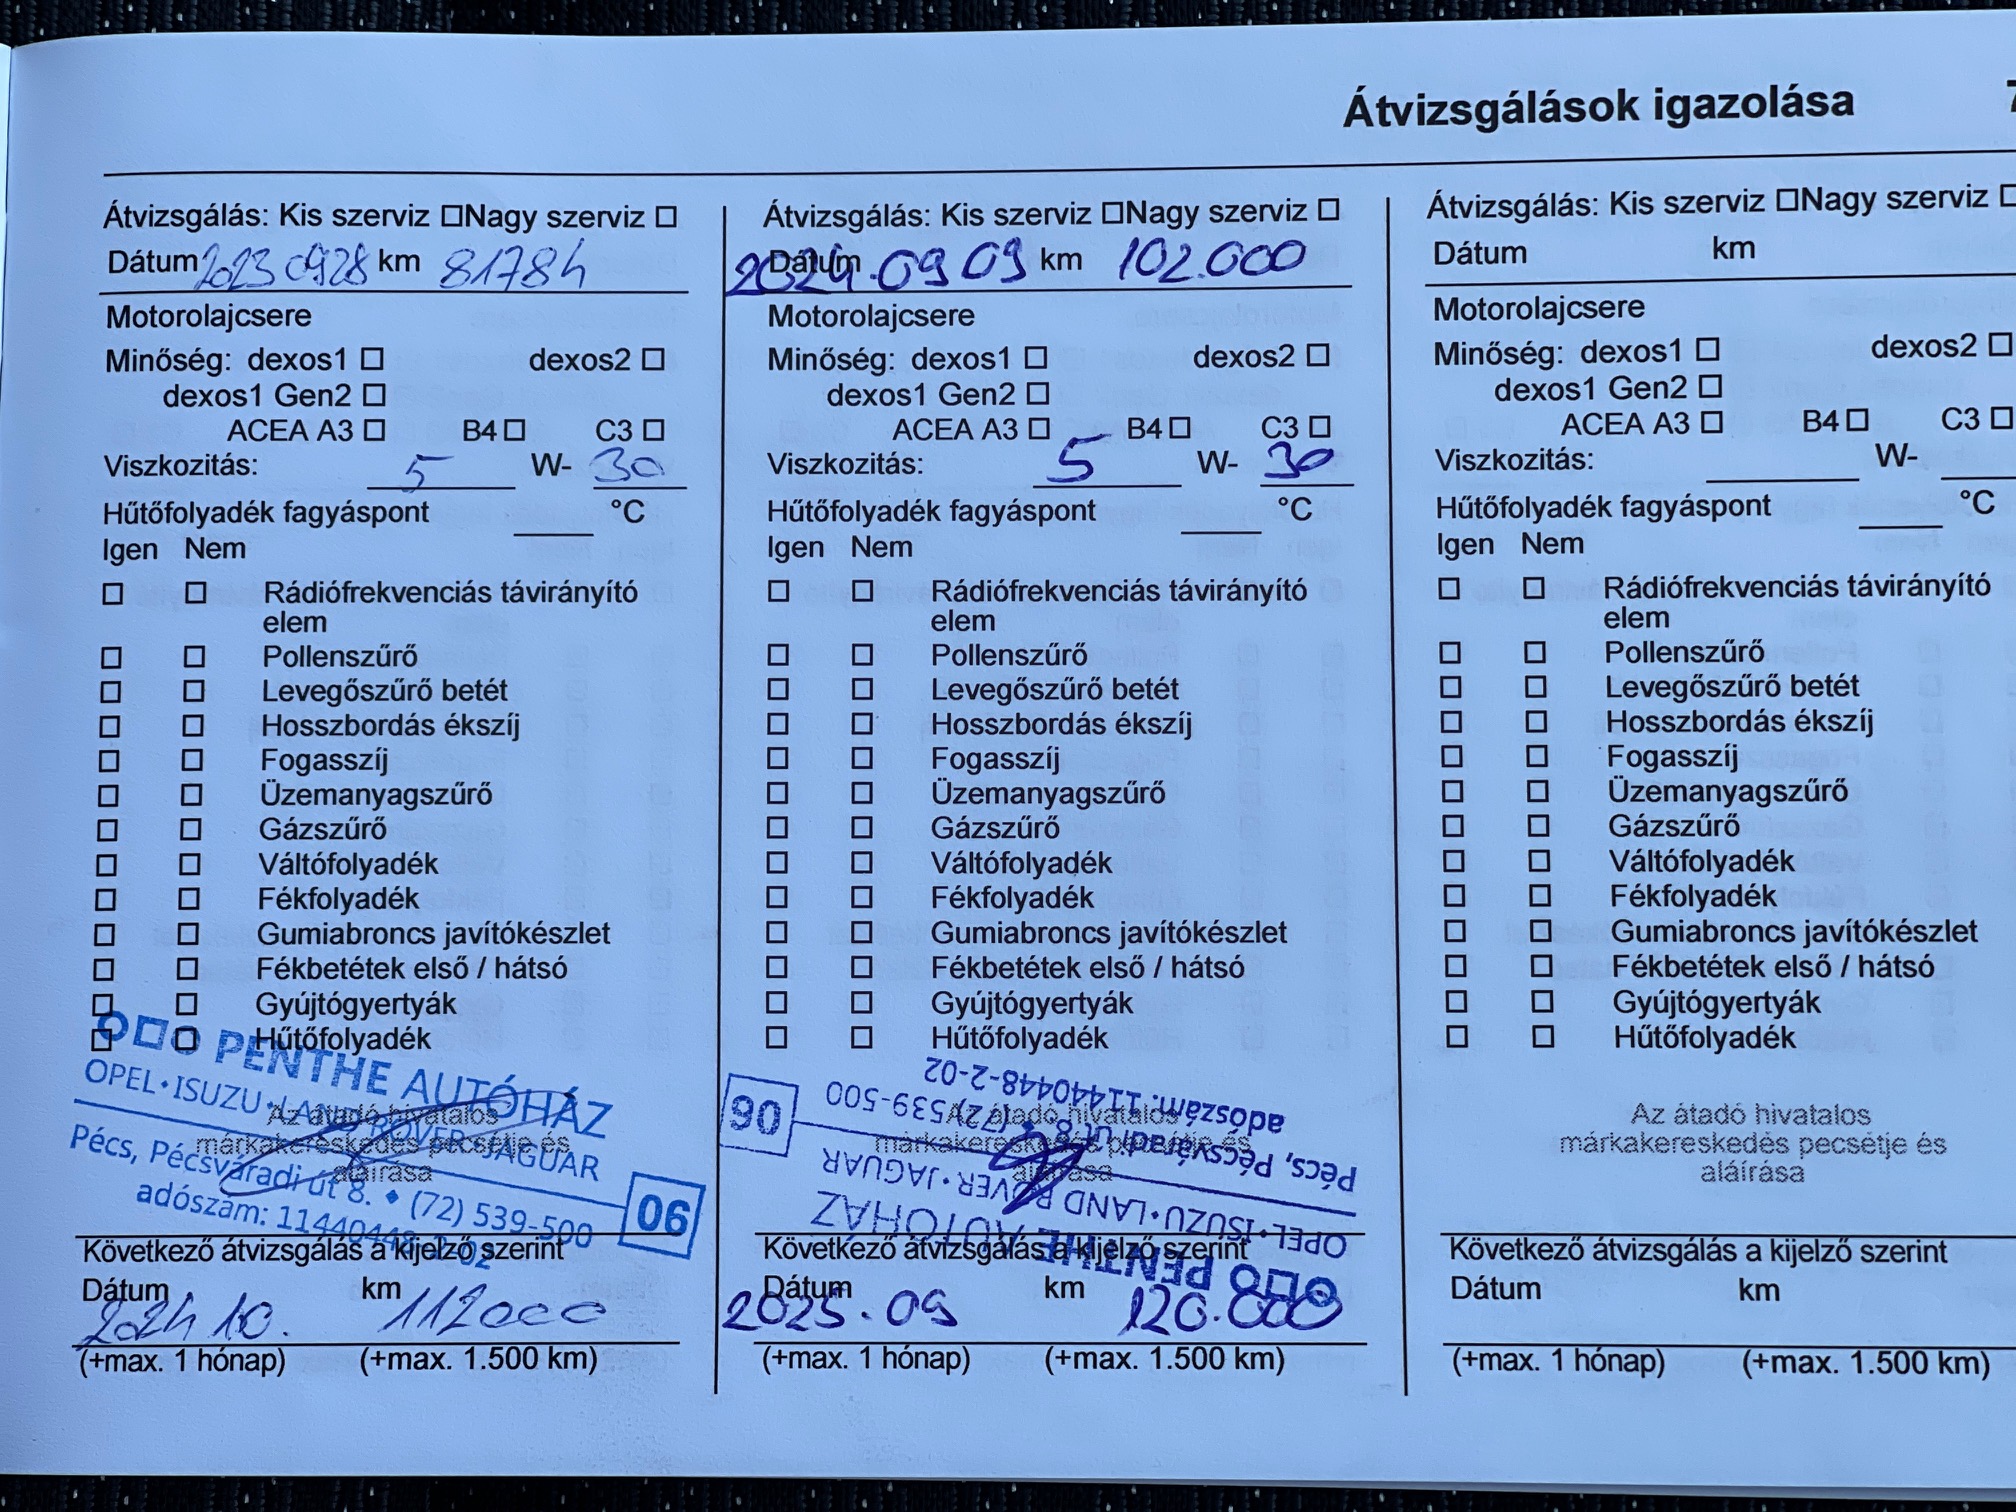 Átvizsgálások igazolása
Átvizsgálás: Kis szerviz Nagy szerviz
Dátum 2023 0928 km 81784
Motorolajcsere
Minőség: dexos1 dexos2
dexos1 Gen2
ACEA A3 B4 C3
Viszkozitás: 5 W- 30
Hűtőfolyadék fagyáspont °C
Igen Nem
Rádiófrekvenciás távirányító
elem
Pollenszűrő
Levegőszűrő betét
Hosszbordás ékszíj
Fogasszíj
Üzemanyagszűrő
Gázszűrő
Váltófolyadék
Fékfolyadék
Gumiabroncs javítókészlet
Fékbetétek első / hátsó
Gyújtógyertyák
Hűtőfolyadék
PENTHE AUTÓHÁZ
OPEL•ISUZU•LAND ROVER•JAGUAR
Pécs, Pécsváradi út 8. ♦ (72) 539-500
adószám: 11440448-2-02
06
Az átadó hivatalos
márkakereskedés pecsétje és
aláírása
Következő átvizsgálás a kijelző szerint
Dátum km
2024 10. 112000
(+max. 1 hónap) (+max. 1.500 km)
Átvizsgálás: Kis szerviz Nagy szerviz
Dátum 2024.09 09 km 102.000
Motorolajcsere
Minőség: dexos1 dexos2
dexos1 Gen2
ACEA A3 B4 C3
Viszkozitás: 5 W- 30
Hűtőfolyadék fagyáspont °C
Igen Nem
Rádiófrekvenciás távirányító
elem
Pollenszűrő
Levegőszűrő betét
Hosszbordás ékszíj
Fogasszíj
Üzemanyagszűrő
Gázszűrő
Váltófolyadék
Fékfolyadék
Gumiabroncs javítókészlet
Fékbetétek első / hátsó
Gyújtógyertyák
Hűtőfolyadék
PENTHE AUTÓHÁZ
OPEL•ISUZU•LAND ROVER•JAGUAR
Pécs, Pécsváradi út 8. ♦ (72) 539-500
adószám: 11440448-2-02
06
Az átadó hivatalos
márkakereskedés pecsétje és
aláírása
Következő átvizsgálás a kijelző szerint
Dátum km
2025.09 120.000
(+max. 1 hónap) (+max. 1.500 km)
Átvizsgálás: Kis szerviz Nagy szerviz
Dátum km
Motorolajcsere
Minőség: dexos1 dexos2
dexos1 Gen2
ACEA A3 B4 C3
Viszkozitás: W-
Hűtőfolyadék fagyáspont °C
Igen Nem
Rádiófrekvenciás távirányító
elem
Pollenszűrő
Levegőszűrő betét
Hosszbordás ékszíj
Fogasszíj
Üzemanyagszűrő
Gázszűrő
Váltófolyadék
Fékfolyadék
Gumiabroncs javítókészlet
Fékbetétek első / hátsó
Gyújtógyertyák
Hűtőfolyadék
Az átadó hivatalos
márkakereskedés pecsétje és
aláírása
Következő átvizsgálás a kijelző szerint
Dátum km
(+max. 1 hónap) (+max. 1.500 km)